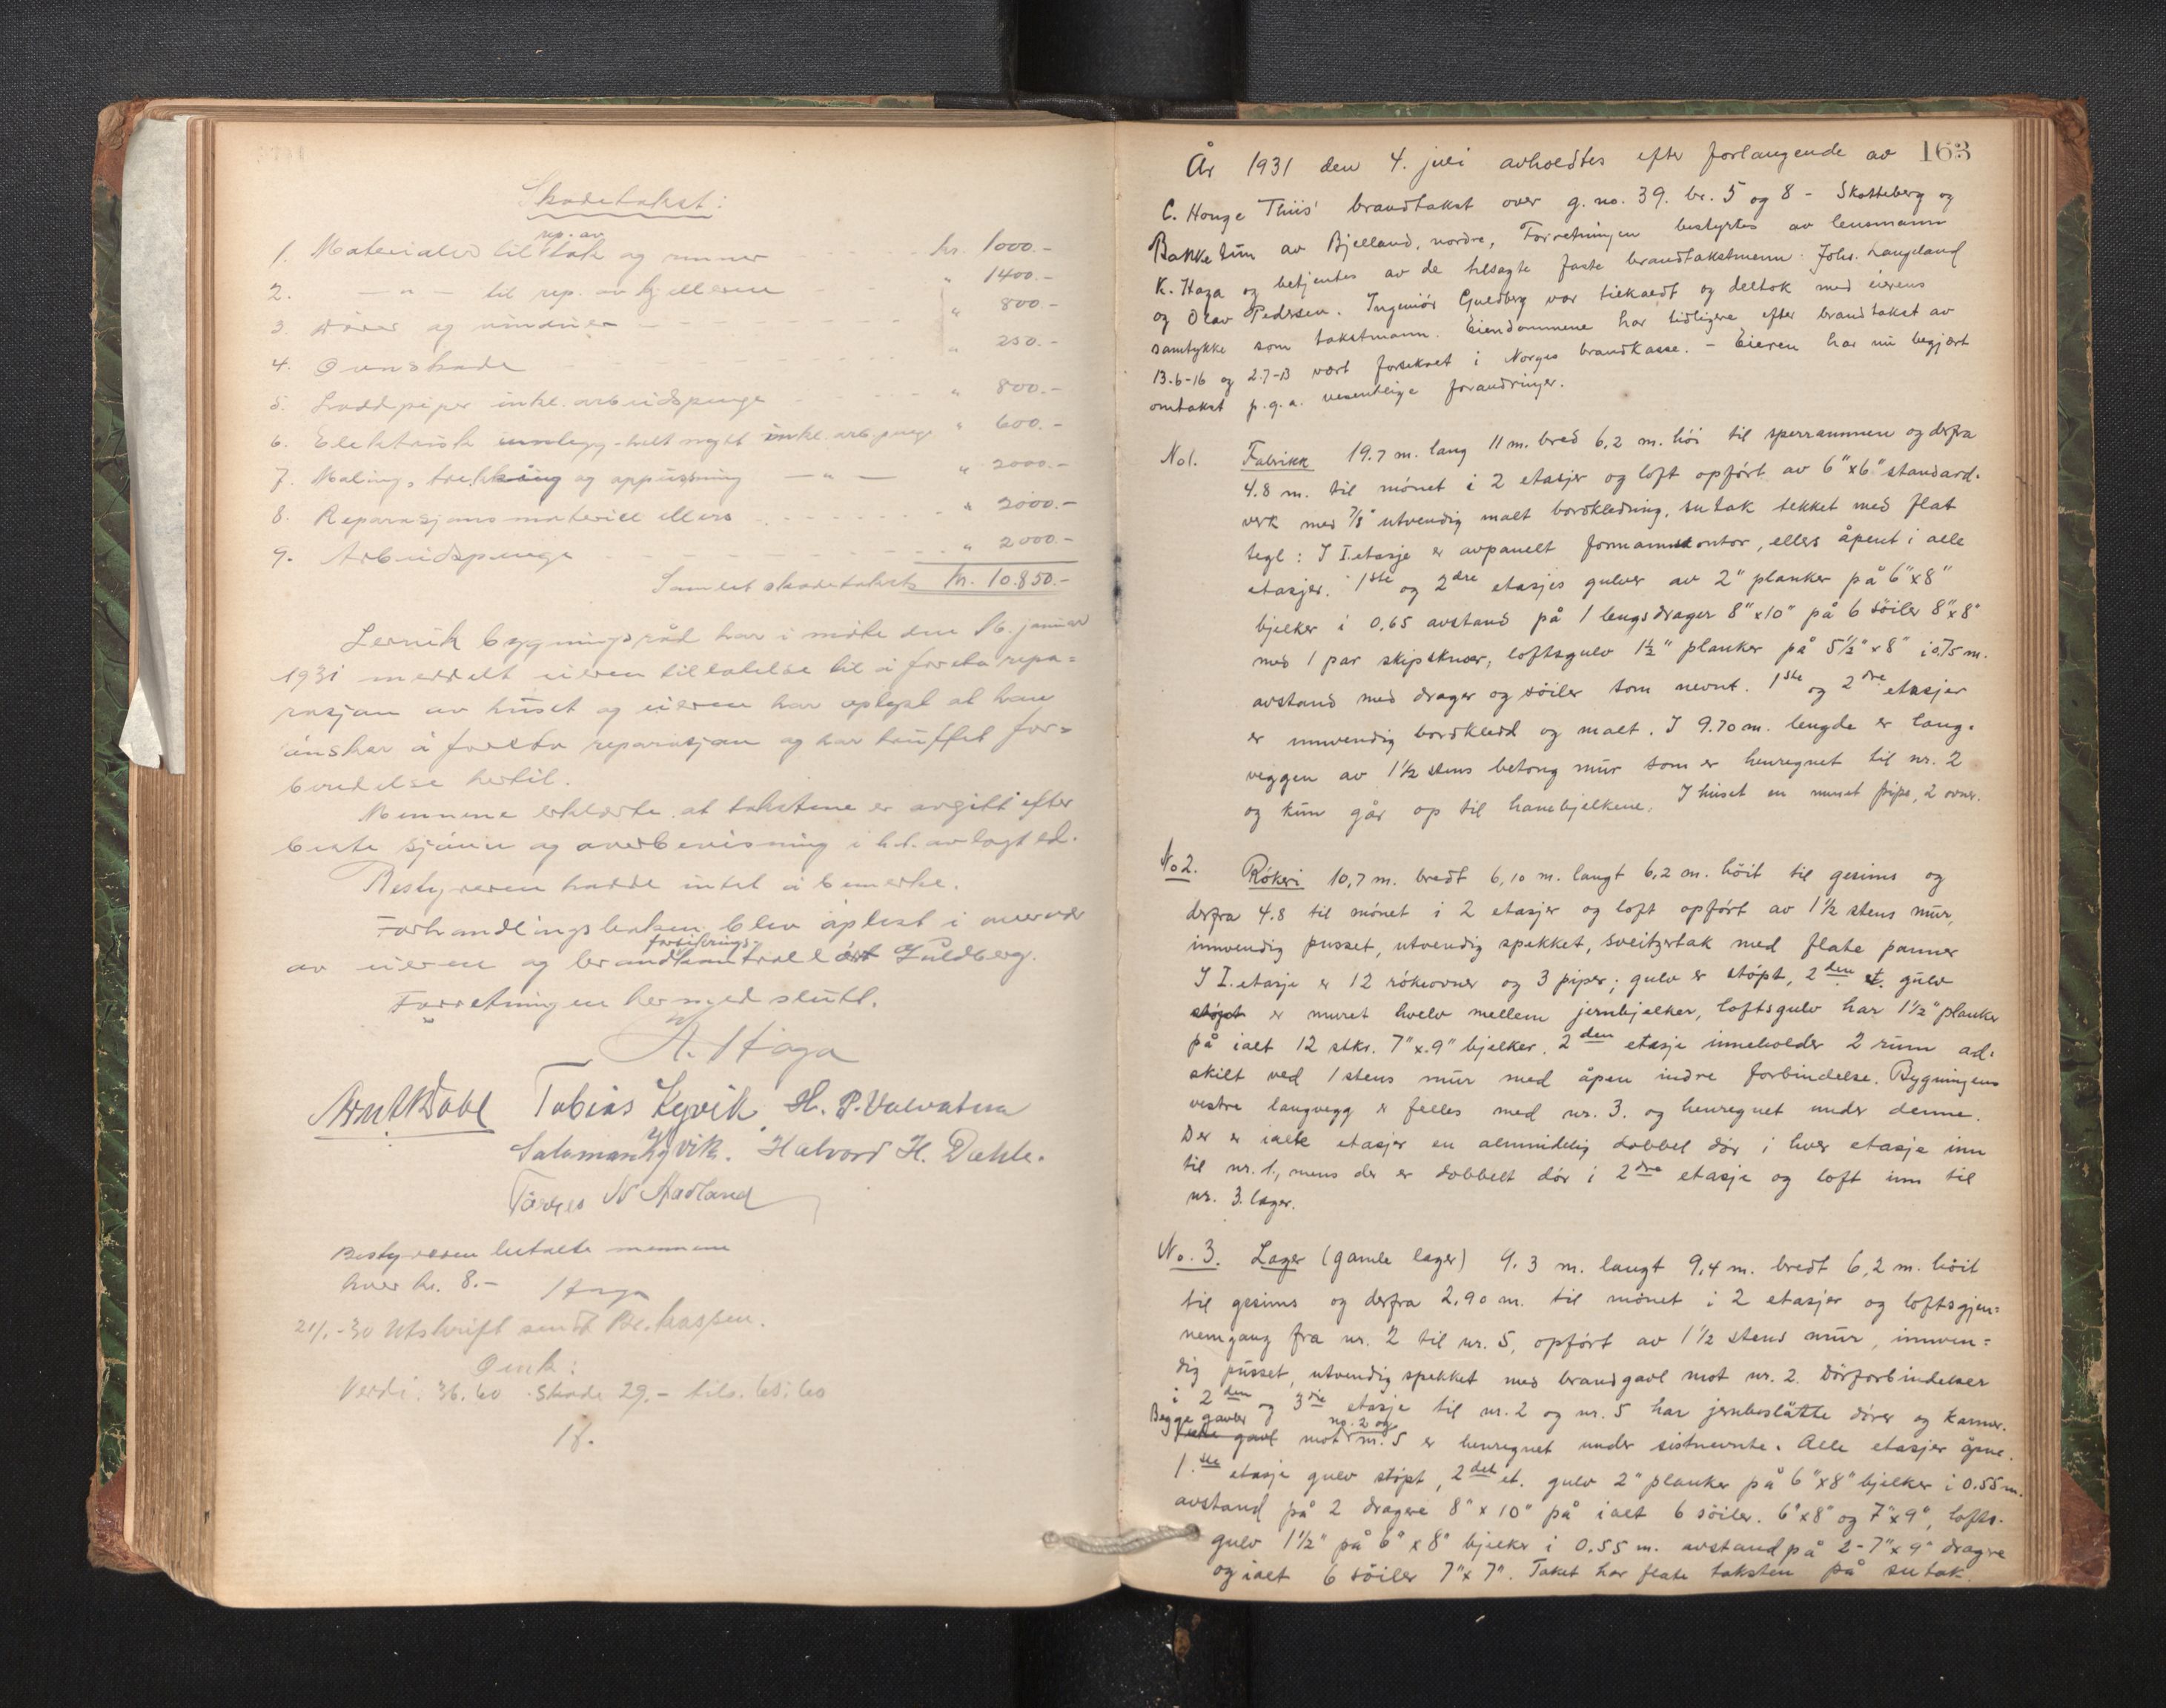 Skadetakst:
1. Materialer til rep. av tak og renner kr. 1000.-
2. — " — til rep. av kjelleren " 1400.-
3. Dører og vinduer " 800.-
4. Ovnskade " 250.-
5. Skaddpiper inkl. arbeidspenge " 800.-
6. Elektrisk innlegg helt nytt inkl. arb.penge " 600.-
7. Maling, trekking og oppussning — " — " 2000.-
8. Reparasjonsmateriell ellers " 2000.-
9. Arbeidspenge " 2000.-
Samlet skadetakst kr. 10.850.-
Lervik bygningsråd har i møte den 16. januar
1931 meddelt eieren tillatelse til å foreta repa=
rasjon av huset og eieren har oplyst at han
ønsker å foreta reparasjon og har truffet for=
beredelse hertil.
Mennene erklærte at takstene er avgitt efter
beste skjønn og overbevisning i h.t. avlagt ed.
Bestyreren hadde intet å bemerke.
Forhandlingsboken blev oplest i overvær
av eieren og brandforsikringskontrollør Guldberg.
Forretningen hermed slutt.
K. Haga
Arnt Dahl Tobias Lyvik H. P. Valvatna
Salomon Kyvik. Halvord H. Dahle.
Tørres N Aadland
Bestyreren betalte mennene
hver kr. 8.- Haga
21/1.-30 Utskrift sendt Br.kassen.
Omk:
Verdi. 36.60 Skade 29.- tils. 65.60
163
År 1931 den 4. juli avholdtes efter forlangende av
C. Houge Thiis' brandtakst over g. no. 39. br. 5 og 8 - Skotteberg og
Bakketun av Bjelland, nordre, Forretningen bestyrtes av lensmann
K. Haga og betjentes av de tilsagte faste brandtakstmenn Johs. Langeland
og Olav Pedersen. Ingeniør Guldberg var tilkaldt og deltok med eierens
samtykke som takstmann. Eiendommene har tidligere efter brandtakst av
13.6-16 og 2.7-13 vært forsikret i Norges brandkasse. - Eieren har nu begjært
omtakst p.g.a. vesentlige forandringer.
No 1. Fabrikk 19.7 m. lang 11 m. bred 6,2 m. høi til sperrammen og derfra
4.8 m. til mønet i 2 etasjer og loft opført av 6" x 6" standard-
verk med 7/8" utvendig malt bordkledning, sutak tekket med flat
tegl: I I. etasje er avpanelt formannskontor, ellers åpent i alle
etasjer. 1ste og 2dre etasjes gulver av 2" planker på 6" x 8"
bjelker i 0,65 avstand på 1 lengsdrager 8" x 10" på 6 søiler 8" x 8"
med 1 par skipsknær, loftsgulv 1½" planker på 5½" x 8" i 0.75 m.
avstand med drager og søiler som nevnt. 1ste og 2dre etasjer
er innvendig bordkledd og malt. I 9.70 m. lengde er lang-
veggen av 1½ stens betong mur som er henregnet til nr. 2
og kun går op til hanebjelkene. I huset en muret pipe, 2 ovner.
No 2. Røkeri 10,7 m. bredt 6,10 m. langt 6,2 m. høit til gesims og
derfra 4.8 til mønet i 2 etasjer og loft opført av 1½ stens mur,
innvendig pusset, utvendig spekket, sveitzertak med flate panner
I I. etasje er 12 røkeovner og 3 piper; gulv er støpt, 2den et. gulv
støpt er muret hvelv mellem jernbjelker, loftsgulv har 1½" planker
på ialt 12 stkr. 7" x 9" bjelker. 2den etasje inneholder 2 rum ad-
skilt ved 1 stens mur med åpen indre forbindelse. Bygningens
vestre langvegg er felles med nr. 3. og henregnet under denne.
Der er i alle etasjer en almindelig dobbel dør i hver etasje inn
til nr. 1., mens der er dobbelt dør i 2dre etasje og loft inn til
nr. 3. lager.
No. 3. Lager (gamle lager) 9.3 m. langt 9,4 m. bredt 6,2 m. høit
til gesims og derfra 2.90 m. til mønet i 2 etasjer og loftsgjen=
nemgang fra nr. 2 til nr. 5, opført av 1½ stens mur, innven=
dig pusset, utvendig spekket med brandgavl mot nr. 2. Dørforbindelser
i 2den og 3die etasje til nr. 2 og nr. 5 har jernbeslåtte dører og karmer.
Begge gavler mot no. 2 og nr. 5 er henregnet under sistnevnte. Alle etasjer åpne.
1.ste etasje gulv støpt, 2det et. gulv 2" planker på 6" x 8" bjelker i 0.55 m.
avstand på 2 dragere 8" x 10" på ialt 6 søiler. 6" x 8" og 7" x 9", lofts-
gulv 1½" på 6" x 8" bjelker i 0.55 m. avstand på 2 - 7" x 9" dragre
og ialt 6 søiler 7" x 7". Taket har flate taksten på sutak.